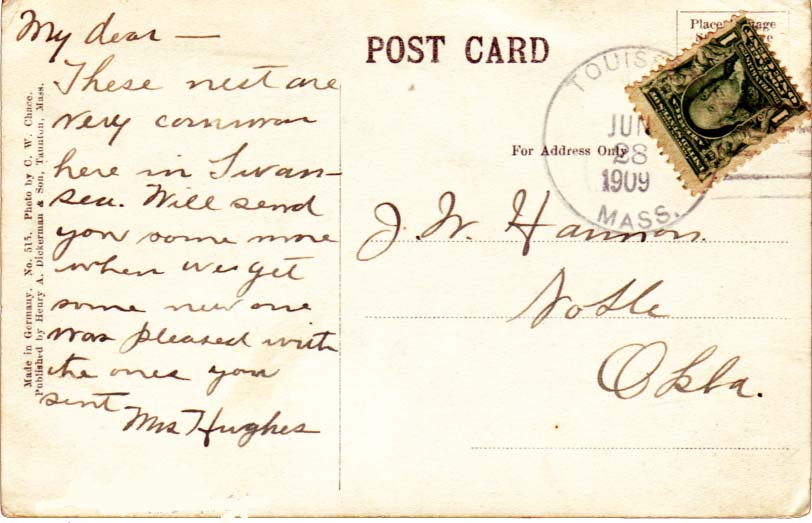 My dear —
These nest are
very common
here in Swan-
sea. Will send
you some more
when we get
some new one
was pleased with
the ones you
sent
Mrs Hughes
Made in Germany. No. 515. Photo by C. W. Chace.
Published by Henry A. Dickerman & Son, Taunton, Mass.
POST CARD
Place
For Address Only
JUN
28
1909
MASS.
1
J. W. Hannon.
Noble
Okla.